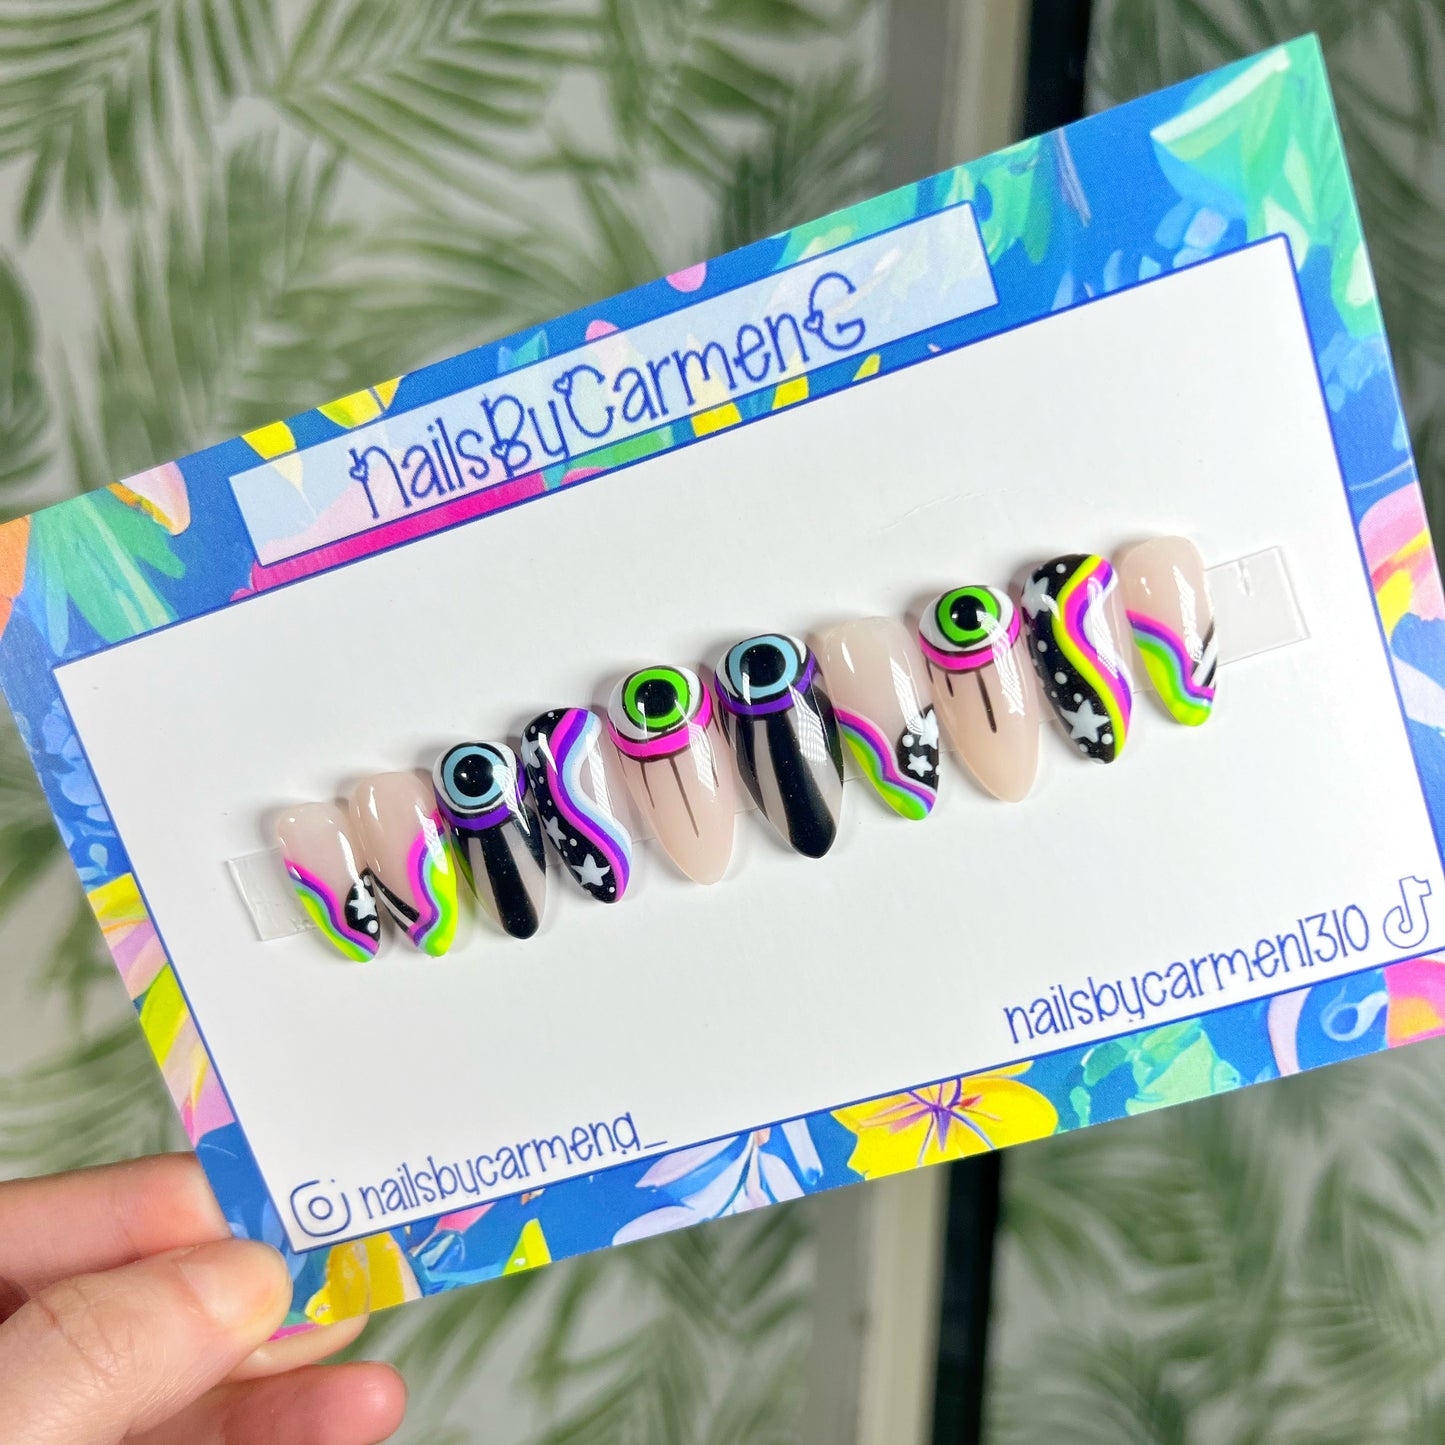 NailsByCarmenG
nailsbycarmen1310
nailsbycarmeng_